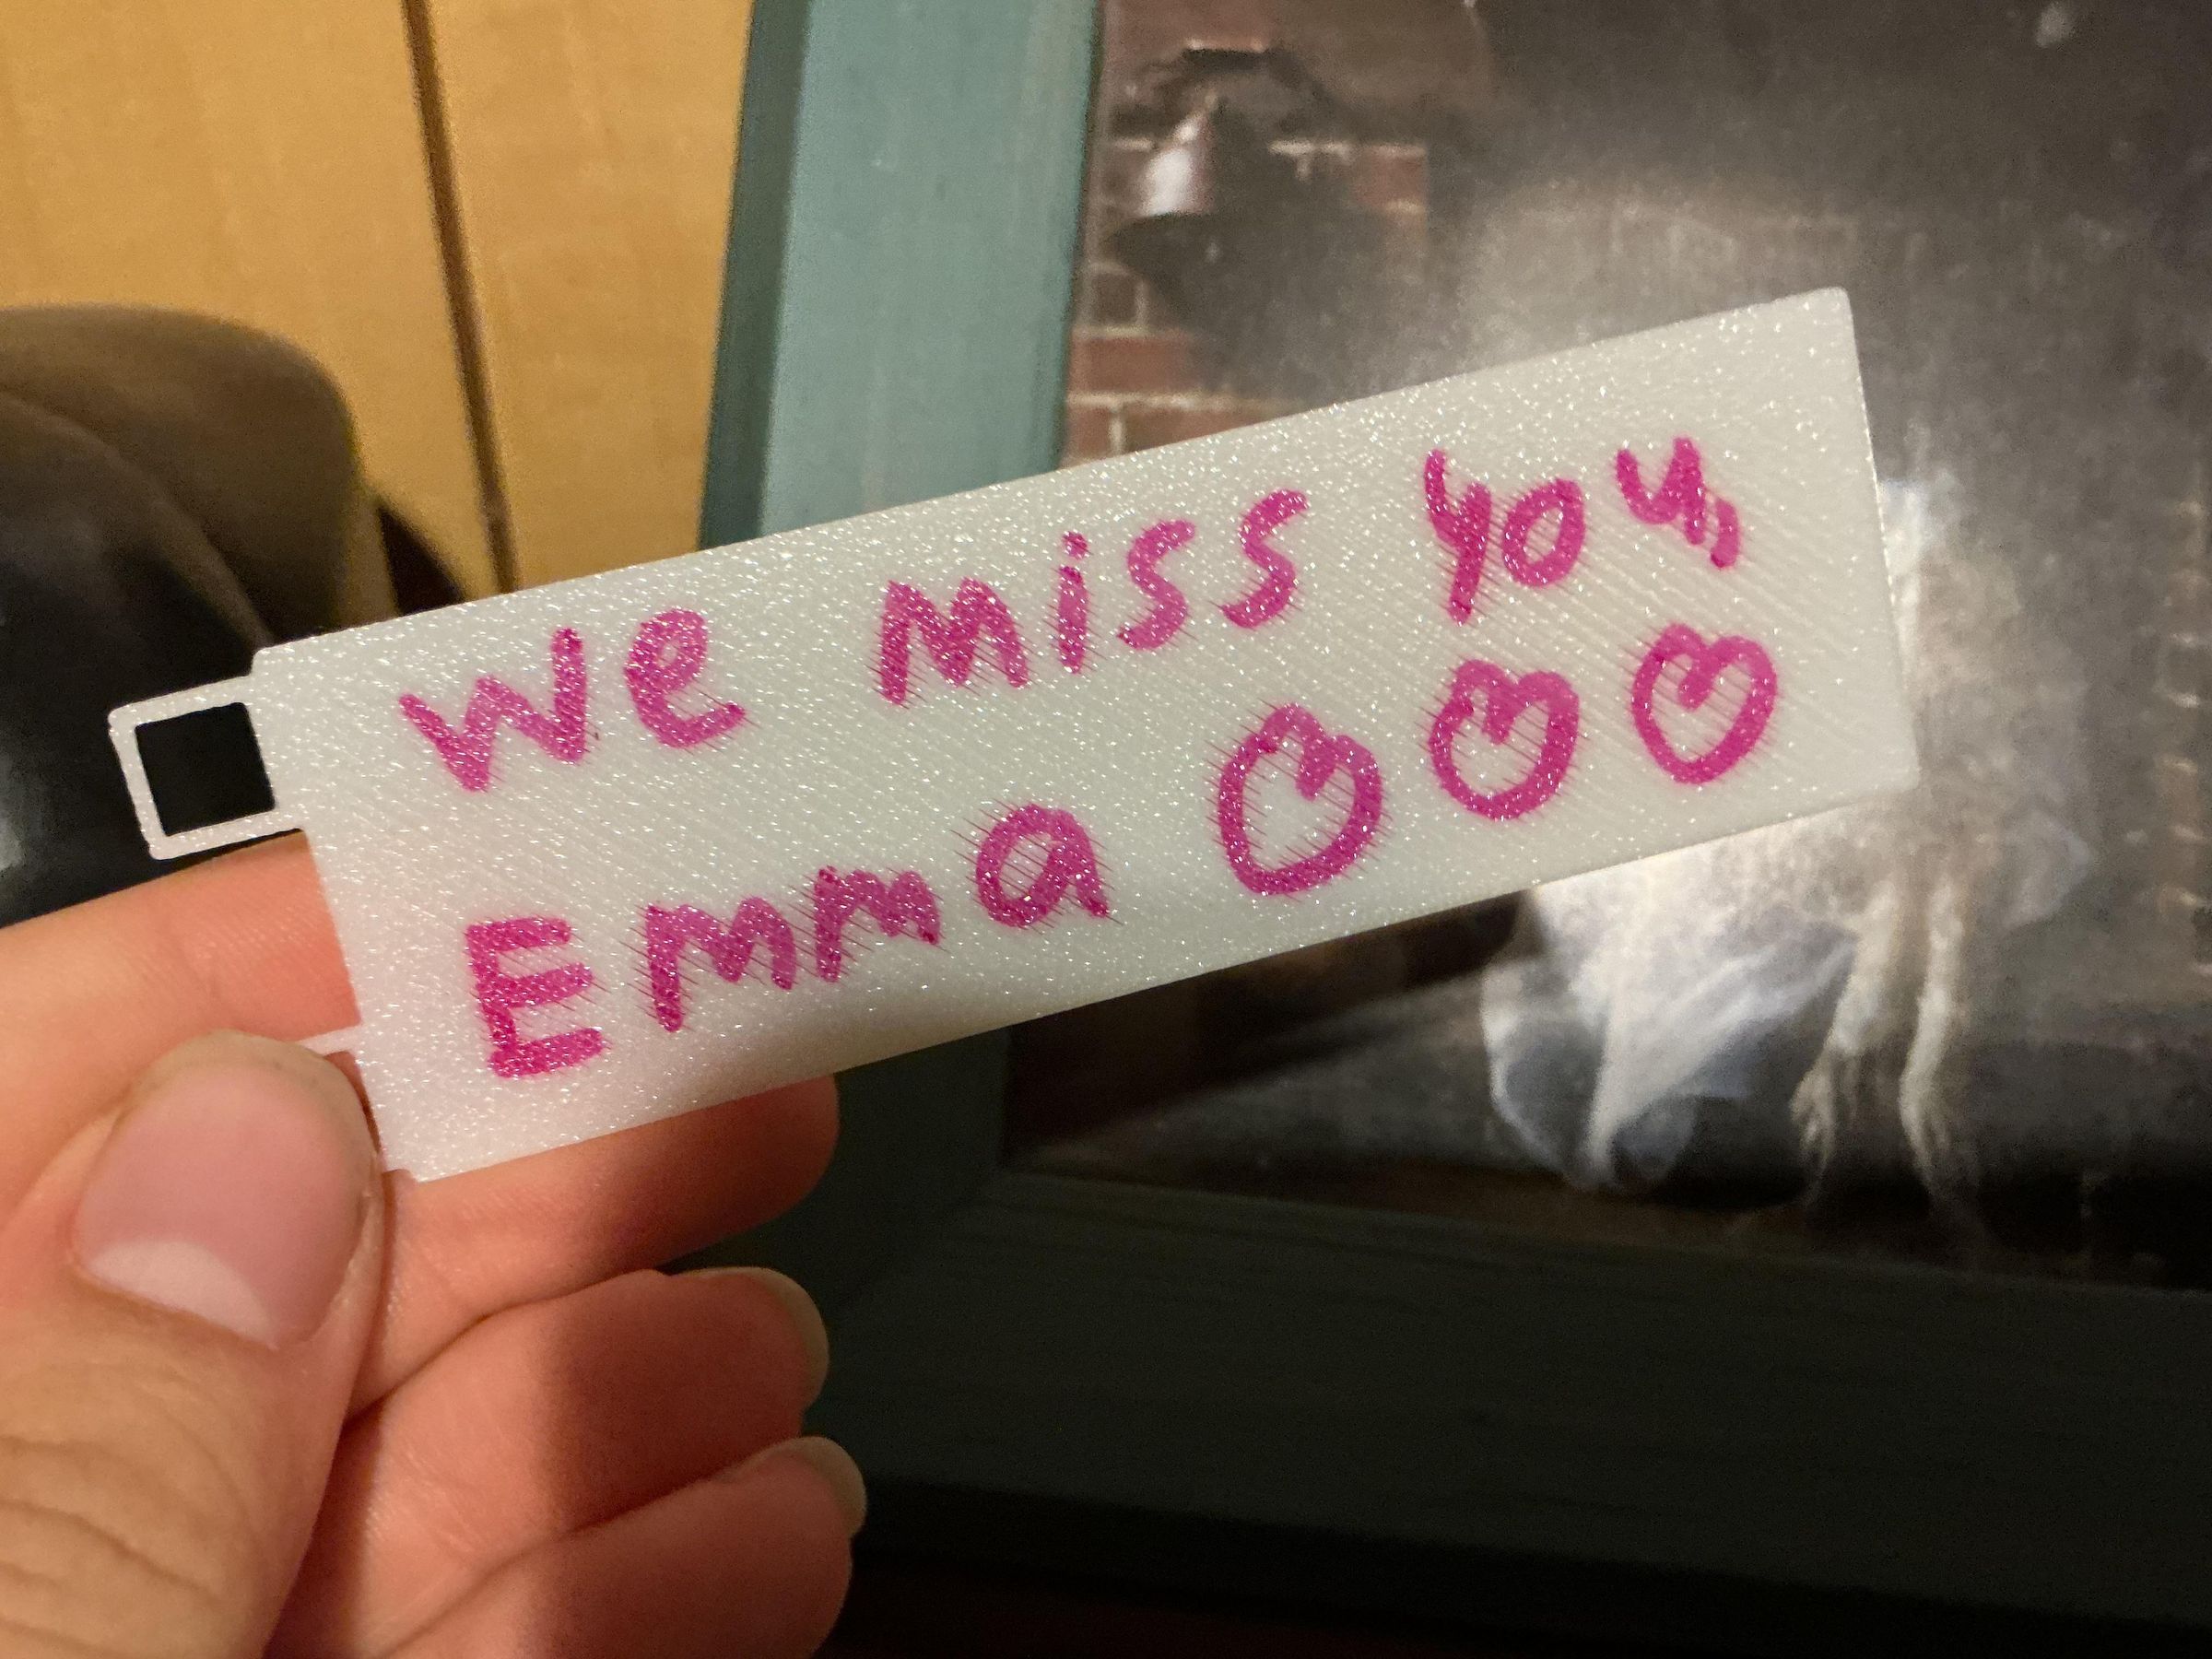 We miss you,
Emma ♡♡♡